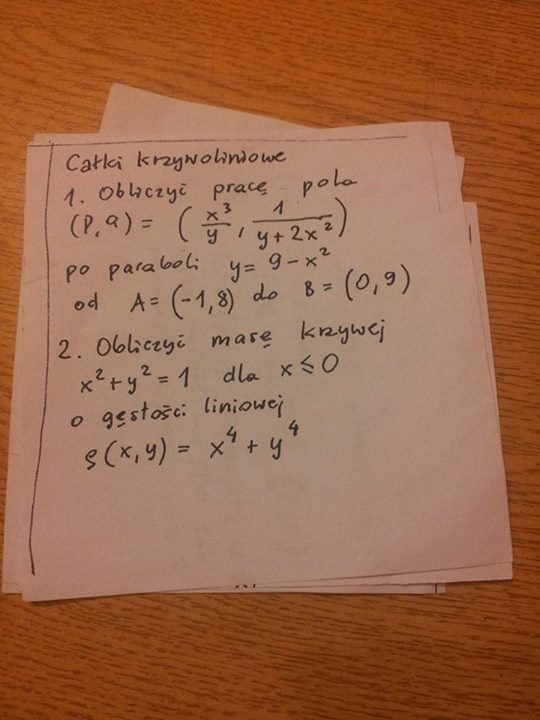 Całki krzywoliniowe
1. Obliczyć pracę pola
(P,Q) = (x³/y, 1/(y+2x²))
po paraboli y = 9 - x²
od A = (-1,8) do B = (0,9)
2. Obliczyć masę krzywej
x² + y² = 1 dla x ≤ 0
o gęstości liniowej
ρ(x,y) = x⁴ + y⁴